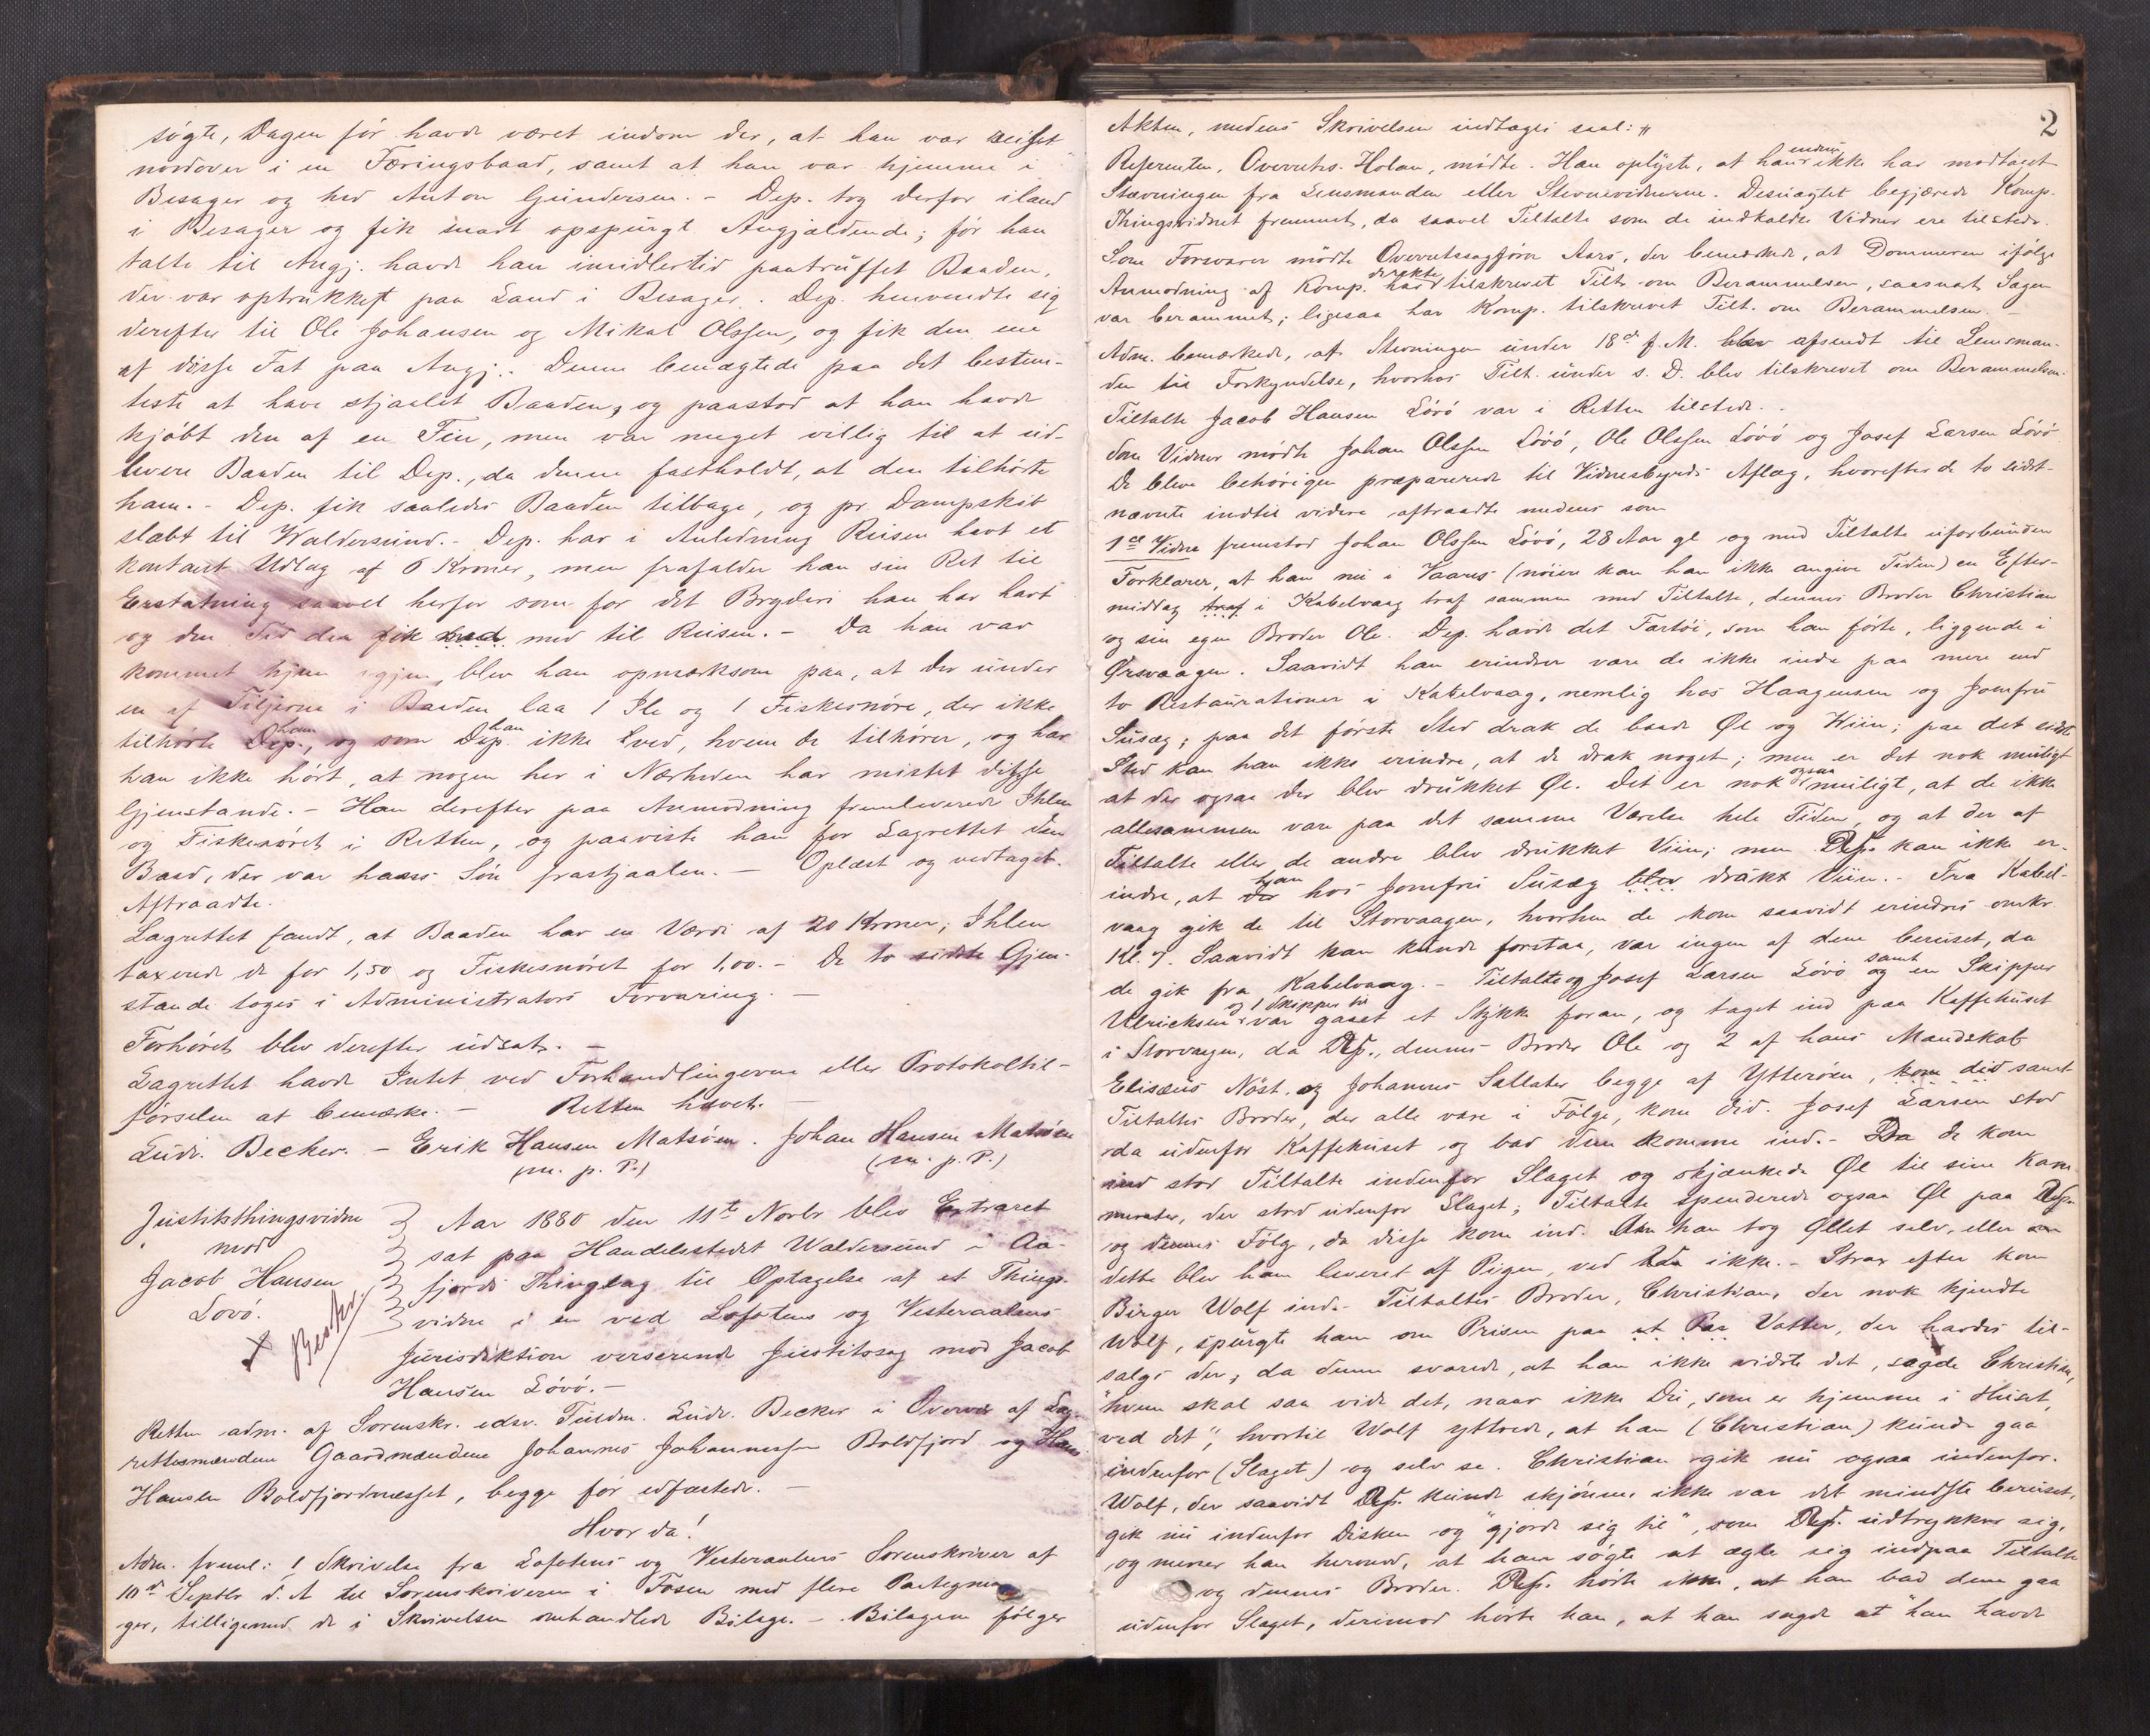 søgte, Dagen før havde været indom der, at han var reist
nordover i en Færingsbaad, samt at han var hjemme i
Besager og hed Anton Gundersen. - Dep. tog derfor iland
i Besager og fik snart opspurgt Angjældende; før han
talte til Angj. havde han imidlertid paatruffet Baaden,
der var optrukket paa Land i Besager. Dep. henvendte sig
derefter til Ole Johansen og Mikal Olssen, og fik den ene
af disse Fat paa Angj.. Denne benægtede paa det bestem-
teste at have stjaalet Baaden, og paastod at han havde
kjøbt den af en Fin, men var meget villig til at ud-
levere Baaden til Dep., da denne fastholdt, at den tilhørte
ham. - Dep. fik saaledes Baaden tilbage, og pr. Dampskib
slæbt til Waldersund. - Dep. har i Anledning Reisen havt et
kontant Udlæg af 6 Kroner, men frafalder han sin Ret til
Erstatning saavel herfor som for det Bryderi han har havt
og den Tid der gik med med til Reisen. - Da han var
kommet hjem igjen, blev han opmærksom paa, at der under
en af Tiljerne i Baaden laa 1 Ile og 1 Fiskesnøre, der ikke
tilhørte Dep., ham og som Dep. han ikke ved, hvem de tilhører, og har
han ikke hørt, at nogen her i Nærheden har mistet disse
Gjenstande. - Han derefter paa Anmodning fremleverede Ihlen
og Fiskesnøret i Retten, og paaviste han for Lagrettet den
Baad, der var hans Søn frastjaalen. - Oplæst og vedtaget.
Aftraadte.
Lagrettet fandt, at Baaden har en Værdi af 20 Kroner; Ihlen
taxerede de for 1,50 og Fiskesnøret for 1,00. - De to sidste Gjen-
stande toges i Administrators Forvaring. -
Forhøret blev derefter udsat. -
Lagrettet havde Intet ved Forhandlingerne eller Protokoltil-
førselen at bemærke. - Retten hævet. -
Ludv. Becker. - Erik Hansen Matsøen. Johan Hansen Matsøen
(m. p. P.) (m. p. P.)
Justitsthingsvidne
mod
Jacob Hansen
Løvø.
Besk.
Aar 1880 den 11te Novbr blev Extraret
sat paa Handelsstedet Waldersund i Aa-
fjords Thinglag til Optagelse af et Things-
vidne i en ved Lofotens og Vesteraalens
Jurisdiktion verserende Justitssag mod Jacob
Hansen Løvø. -
Retten adm. af Sorenskr. edsv. Fuldm. Ludv. Becker i Overvær af Lag-
rettesmændene Gaardmændene Johannes Johannessen Boldfjord og Hans
Hansen Boldfjordnesset, begge før edfæstede. -
Hvor da!
Adm. freml: 1 Skrivelse fra Lofotens og Vesteraalens Sorenskriver af
10de Septbr d. A. til Sorenskriveren i Fosen med flere Paategnin-
ger, tilligemed de i Skrivelsen omhandlede Bilage. - Bilagene følger
2
Akten, medens Skrivelsen indtages saal:
Referenten, Overretss. Holan, mødte. Han oplyste, at han endnu ikke har modtaget
Stævningen fra Lensmanden eller Stevnevidnerne. Desuagtet begjærede Komp.
Thingsvidnet fremmet, da saavel Tiltalte som de indkaldte Vidner ere tilstede.
Som Forsvarer mødte Overretssagfører Aars, der bemærkede, at Dommeren ifølge
Anmodning af Komp. havde direkte tilskrevet Tilt. om Berammelsen, saasnart Sagen
var berammet; ligesaa har Komp. tilskrevet Tilt. om Berammelsen. -
Adm. bemærkede, at Stevningen under 18de f. M. blev afsendt til Lensman-
den til Forkyndelse, hvorhos Tilt. under s. D. blev tilskrevet om Berammelsen.
Tiltalte Jacob Hansen Løvø var i Retten tilstede. -
Som Vidner mødte Johan Olssen Løvø, Ole Olssen Løvø og Josef Larsen Løvø
De bleve behørigen præparerede til Vidnesbyrds Aflæg, hvorefter de to sidst-
nævnte indtil videre aftraadte medens som
1ste Vidne fremstod Johan Olssen Løvø, 28 Aar gl og med Tiltalte uforbunden
Forklarer, at han nu i Vaares (nøiere kan han ikke angive Tiden) en Efter-
middag traf i Kabelvaag traf sammen med Tiltalte, dennes Broder Christian
og sin egen Broder Ole. Dep. havde det Fartøi, som han førte, liggende i
Ørsvaagen. Saavidt han erindrer vare de ikke inde paa mere end
to Restaurationer i Kabelvaag, nemlig hos Haagensen og Jomfru
Susæg; paa det første Sted drak de baade Øl og Viin; paa det sidste
Sted kan han ikke erindre, at de drak noget; men er det nok muligt
at der ogsaa der blev drukket Øl. Det er nok ogsaa muligt, at de ikke
allesammen vare paa det samme Værelse hele Tiden, og at der af
Tiltalte eller de andre blev drukket Viin; men Dep. kan ikke er-
indre, at der han hos Jomfru Susæg blev drukket Viin. - Fra Kabel-
vaag gik de til Storvaagen, hvorhen de kom saavidt erindres omkr.
Kl. 7. Saavidt han kunde forstaa, var ingen af dem beruset, da
de gik fra Kabelvaag. - Tiltalte og Josef Larsen Løvø samt og en Skipper
Ulricksen og 1 Skipper til var gaaet et Stykke foran, og taget ind paa Kaffehuset
i Storvaagen, da Dep., dennes Broder Ole og 2 af hans Mandskab
Elisæus Næst. og Johannes Sallater begge af Ytterøen, kom did samt
Tiltaltes Broder, der alle vare i Følge, kom did. Josef Larsen stod
da udenfor Kaffehuset og bad dem komme ind. - Da de kom
ind stod Tiltalte indenfor Slaget og skjænkede Øl til sine Kam-
merater, der stod udenfor Slaget; Tiltalte spenderede ogsaa Øl paa Dep.
og dennes Følge, da disse kom ind. Om han tog Øllet selv, eller om
dette blev ham leveret af Pigen, ved Dep. ikke. - Strax efter kom
Birger Wolf ind. - Tiltaltes Broder, Christian, der nok kjendte
Wolf, spurgte ham om Prisen paa et Par Votter, der havdes til-
salgs der; da denne svarede, at han ikke vidste det, sagde Christian,
"hvem skal saa vide det, naar ikke Du, som er hjemme i Huset,
ved det", hvortil Wolf yttrede, at han (Christian) kunde gaa
indenfor (Slaget) og selv se. Christian gik nu ogsaa indenfor.
Wolf, der saavidt Dep. kunde skjønne, ikke var det mindste beruset,
gik nu indenfor Disken og "gjorde sig til", som Dep. udtrykker sig,
og mener han hermed, at han søgte at ægle sig indpaa Tiltalte
og dennes Broder. Dep. hørte ikke, at han bad dem gaa
udenfor Slaget, derimod hørte han, at han sagde at "han havde